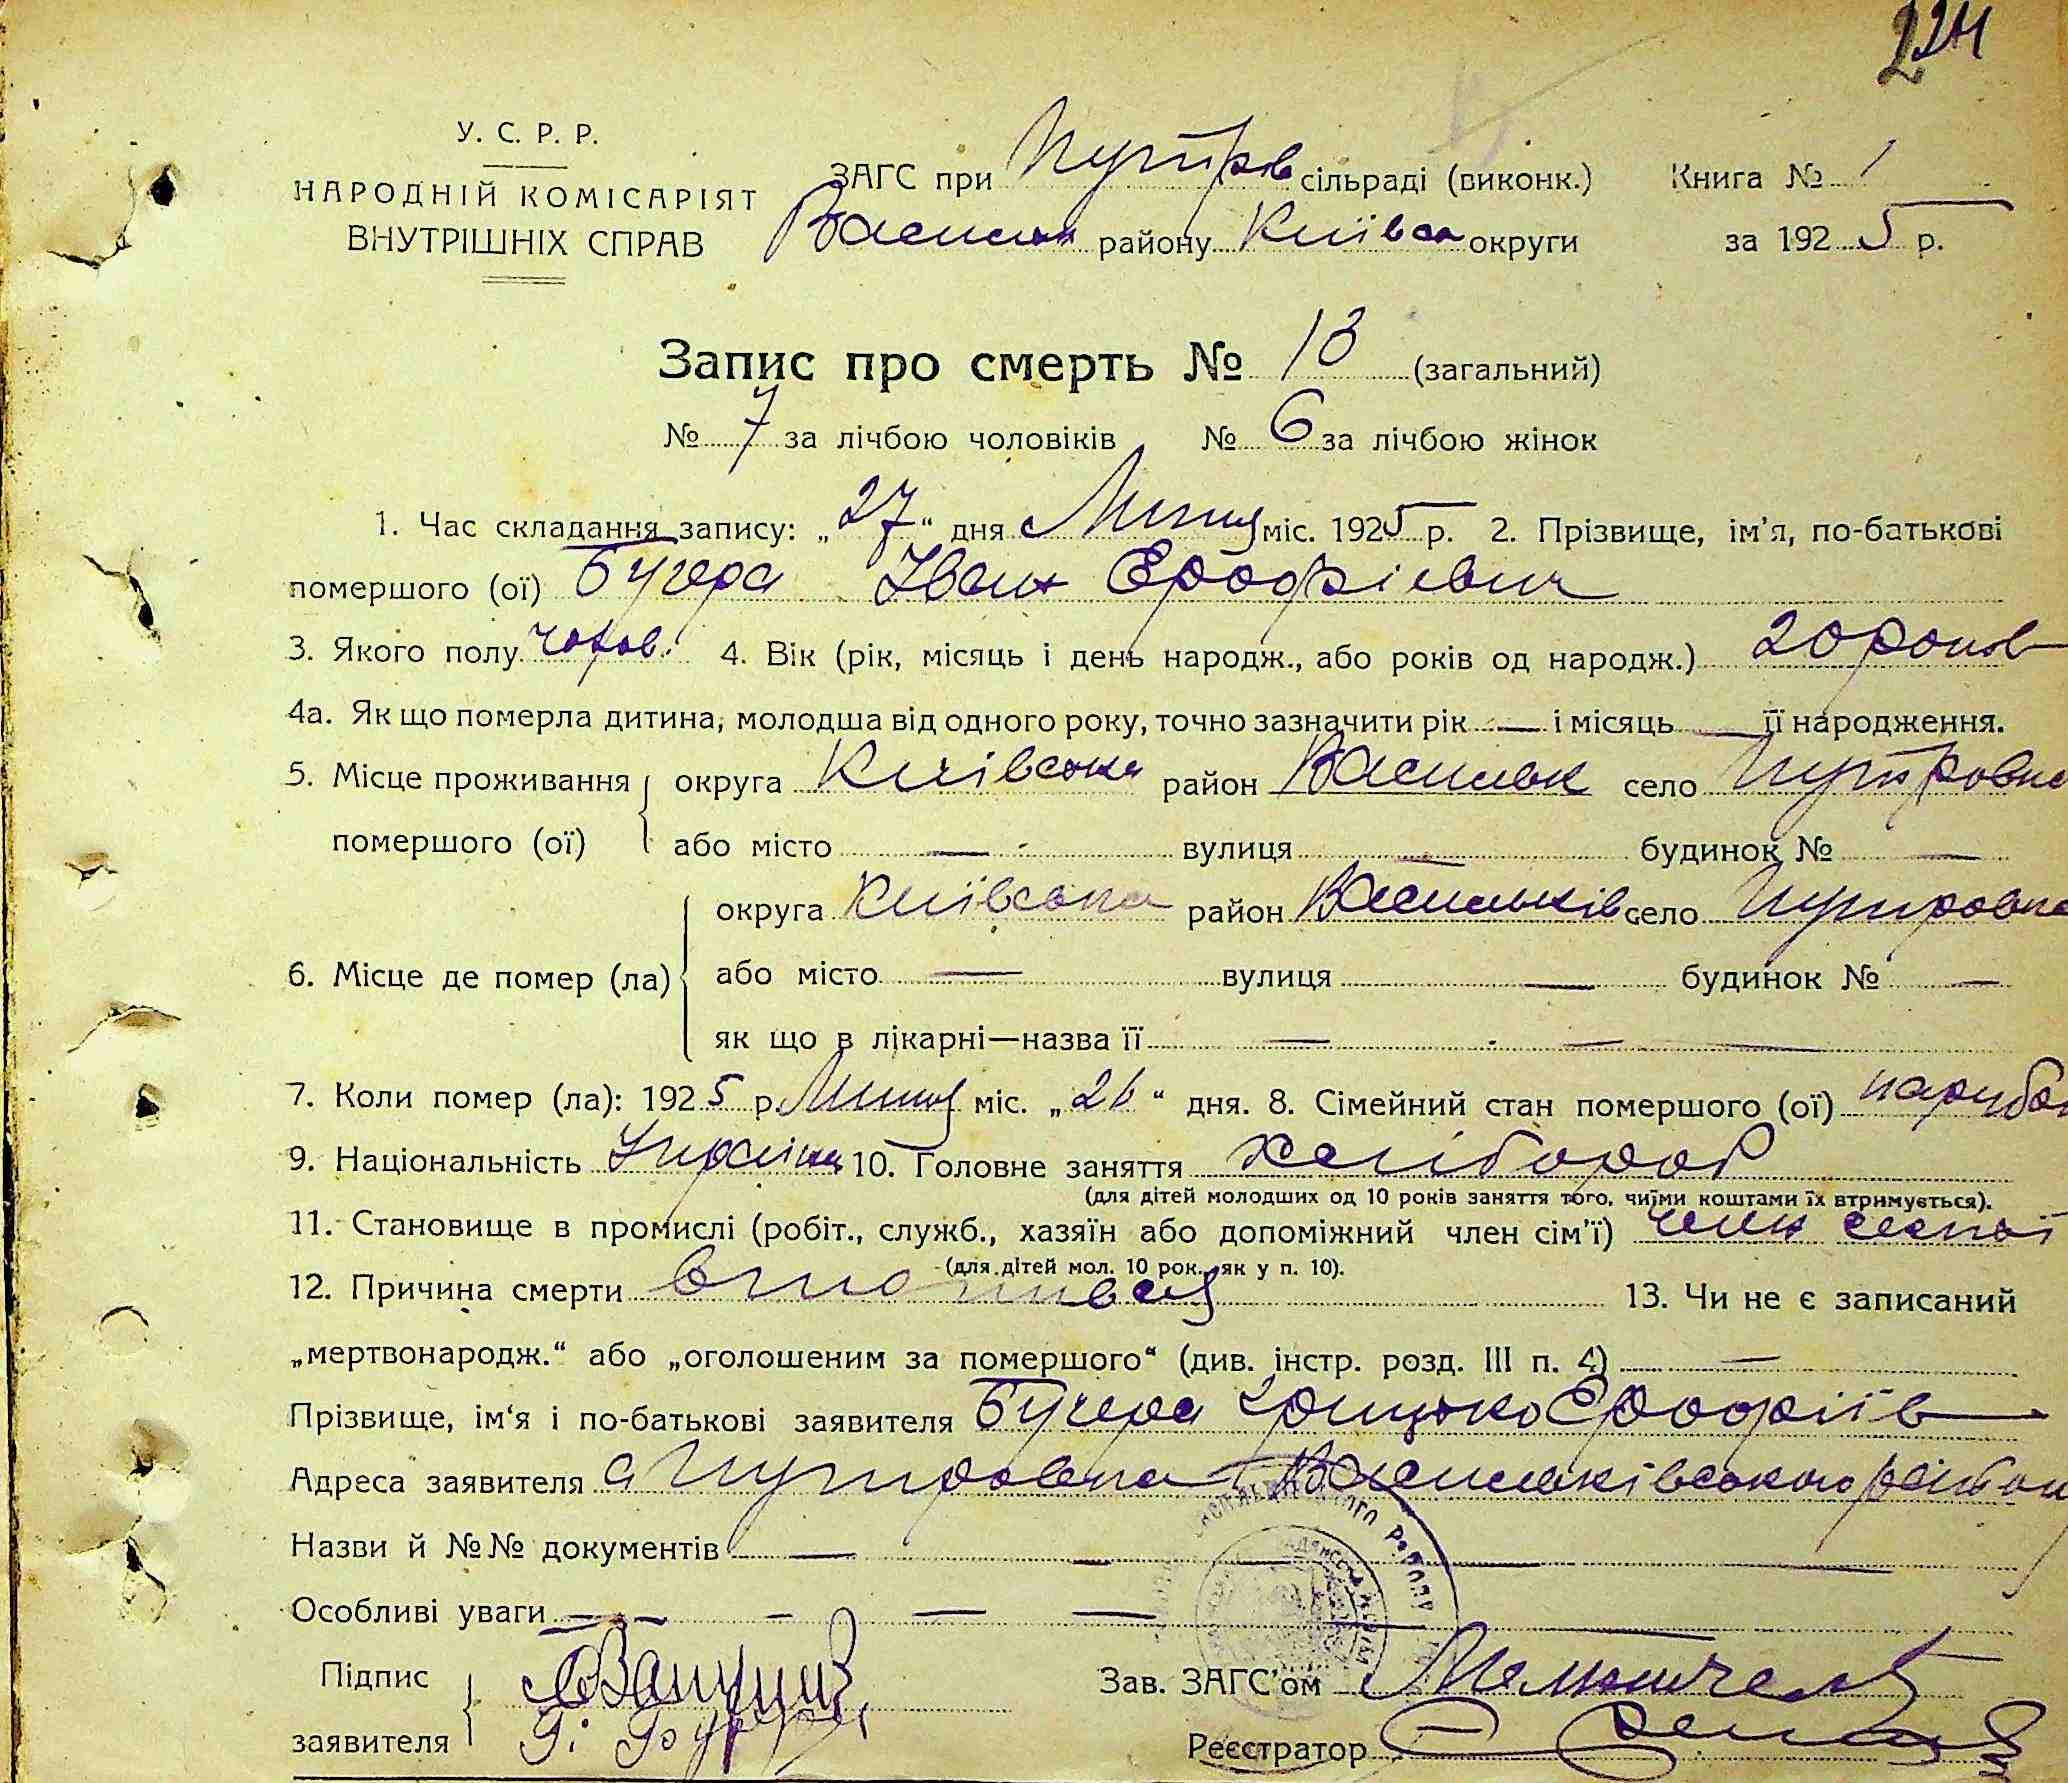 224
У. С. Р. Р.
НАРОДНІЙ КОМІСАРІЯТ
ВНУТРІШНІХ СПРАВ
ЗАГС при Путрів сільраді (виконк.) Книга № 1
Васильк району Київськ округи за 1925 р.
Запис про смерть № 13 (загальний)
№ 7 за лічбою чоловіків № 6 за лічбою жінок
1. Час складання запису: „27“ дня Липня міс. 1925 р. 2. Прізвище, ім'я, по-батькові
помершого (ої) Бугера Іван Ерофієвич
3. Якого полу чолов. 4. Вік (рік, місяць і день народж., або років од народж.) 20 років
4а. Як що померла дитина, молодша від одного року, точно зазначити рік — і місяць — її народження.
5. Місце проживання округа Київська район Васильк село Путровка
помершого (ої) або місто — вулиця — будинок № —
округа Київська район Васильків село Путровка
6. Місце де помер (ла) або місто — вулиця — будинок № —
як що в лікарні—назва її — —
7. Коли помер (ла): 1925 р. Липня міс. „26“ дня. 8. Сімейний стан помершого (ої) парубок
9. Національність Україн 10. Головне заняття хлібороб
(для дітей молодших од 10 років заняття того, чиїми коштами їх втримується).
11. Становище в промислі (робіт., служб., хазяїн або допоміжний член сім'ї) член сем'ї
(для дітей мол. 10 рок., як у п. 10).
12. Причина смерти втопився 13. Чи не є записаний
„мертвонародж.“ або „оголошеним за помершого“ (див. інстр. розд. III п. 4) —
Прізвище, ім'я і по-батькові заявителя Бугера Грицько Ерофіїв
Адреса заявителя с Путровка Васильківського району
Назви й №№ документів — — —
Особливі уваги — — — — —
Підпис
заявителя
Зав. ЗАГС'ом
Реєстратор